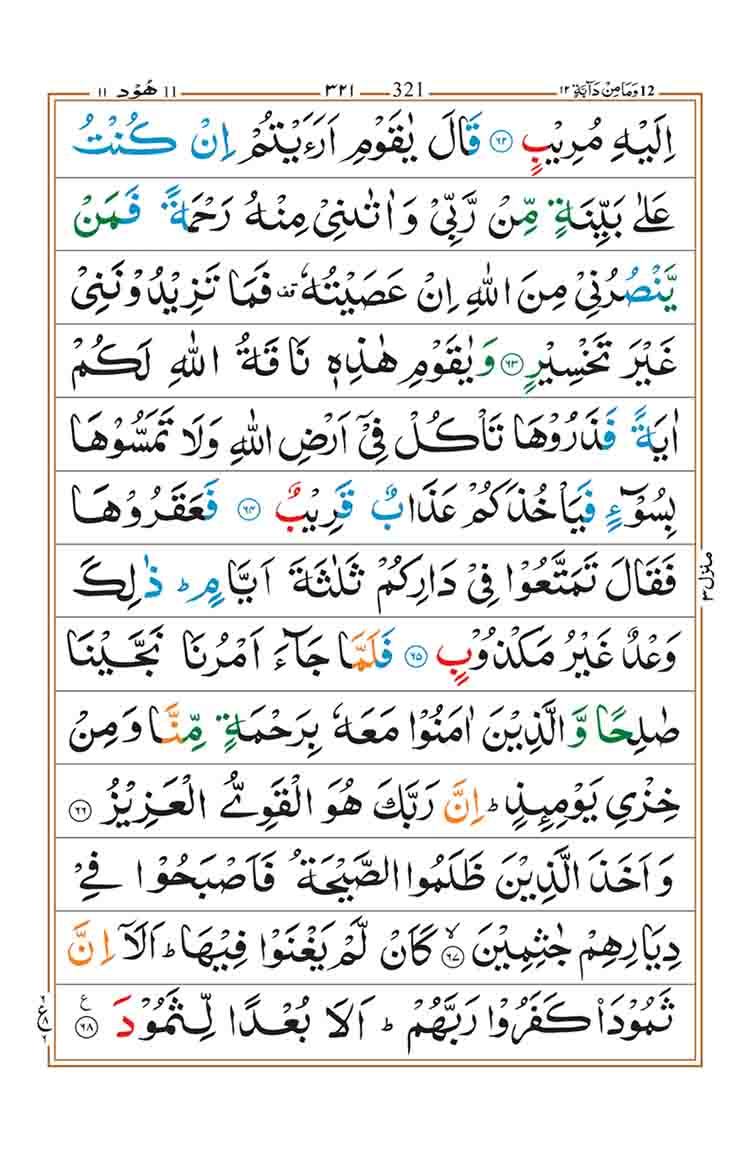 ١١ هُوْد 11 ٣٢١ 321 ١٢ وَمَا مِنْ دَآبَّةٍ 12
اِلَيْهِ مُرِيْبٍ ﴿٦٢﴾ قَالَ يٰقَوْمِ اَرَءَيْتُمْ اِنْ كُنْتُ
عَلٰى بَيِّنَةٍ مِّنْ رَّبِّيْ وَاٰتٰىنِيْ مِنْهُ رَحْمَةً فَمَنْ
يَّنْصُرُنِيْ مِنَ اللهِ اِنْ عَصَيْتُهٗ ࣞ فَمَا تَزِيْدُوْنَنِيْ
غَيْرَ تَخْسِيْرٍ ﴿٦٣﴾ وَيٰقَوْمِ هٰذِهٖ نَاقَةُ اللهِ لَكُمْ
اٰيَةً فَذَرُوْهَا تَاْكُلْ فِيْٓ اَرْضِ اللهِ وَلَا تَمَسُّوْهَا
بِسُوْٓءٍ فَيَاْخُذَكُمْ عَذَابٌ قَرِيْبٌ ﴿٦٤﴾ فَعَقَرُوْهَا
فَقَالَ تَمَتَّعُوْا فِيْ دَارِكُمْ ثَلٰثَةَ اَيَّامٍ ؕ ذٰلِكَ
وَعْدٌ غَيْرُ مَكْذُوْبٍ ﴿٦٥﴾ فَلَمَّا جَآءَ اَمْرُنَا نَجَّيْنَا
صٰلِحًا وَّالَّذِيْنَ اٰمَنُوْا مَعَهٗ بِرَحْمَةٍ مِّنَّا وَمِنْ
خِزْيِ يَوْمِئِذٍ ؕ اِنَّ رَبَّكَ هُوَ الْقَوِيُّ الْعَزِيْزُ ﴿٦٦﴾
وَاَخَذَ الَّذِيْنَ ظَلَمُوا الصَّيْحَةُ فَاَصْبَحُوْا فِيْ
دِيَارِهِمْ جٰثِمِيْنَ ۙ﴿٦٧﴾ كَاَنْ لَّمْ يَغْنَوْا فِيْهَا ؕ اَلَآ اِنَّ
ثَمُوْدَا۟ كَفَرُوْا رَبَّهُمْ ؕ اَلَا بُعْدًا لِّثَمُوْدَ ﴿٦٨﴾ ع
منزل ٣
ع ٨